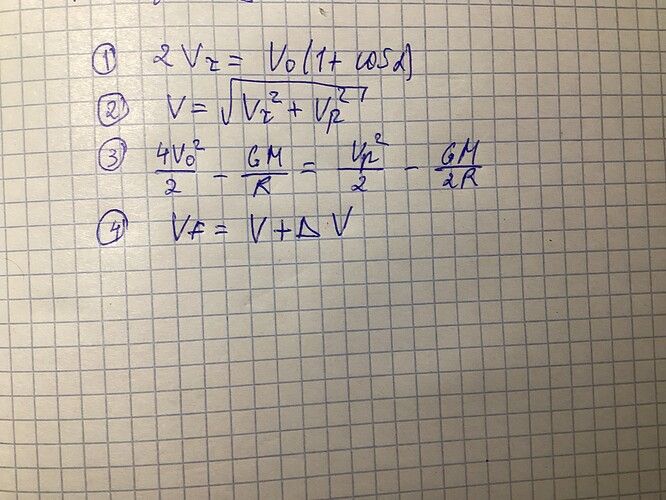 ① 2 V₂ = V₀(1 + cosα)
② V = √(V₂² + Vₚ²)
③ 4V₀²/2 - GM/R = Vₚ²/2 - GM/2R
④ V_F = V + Δ V